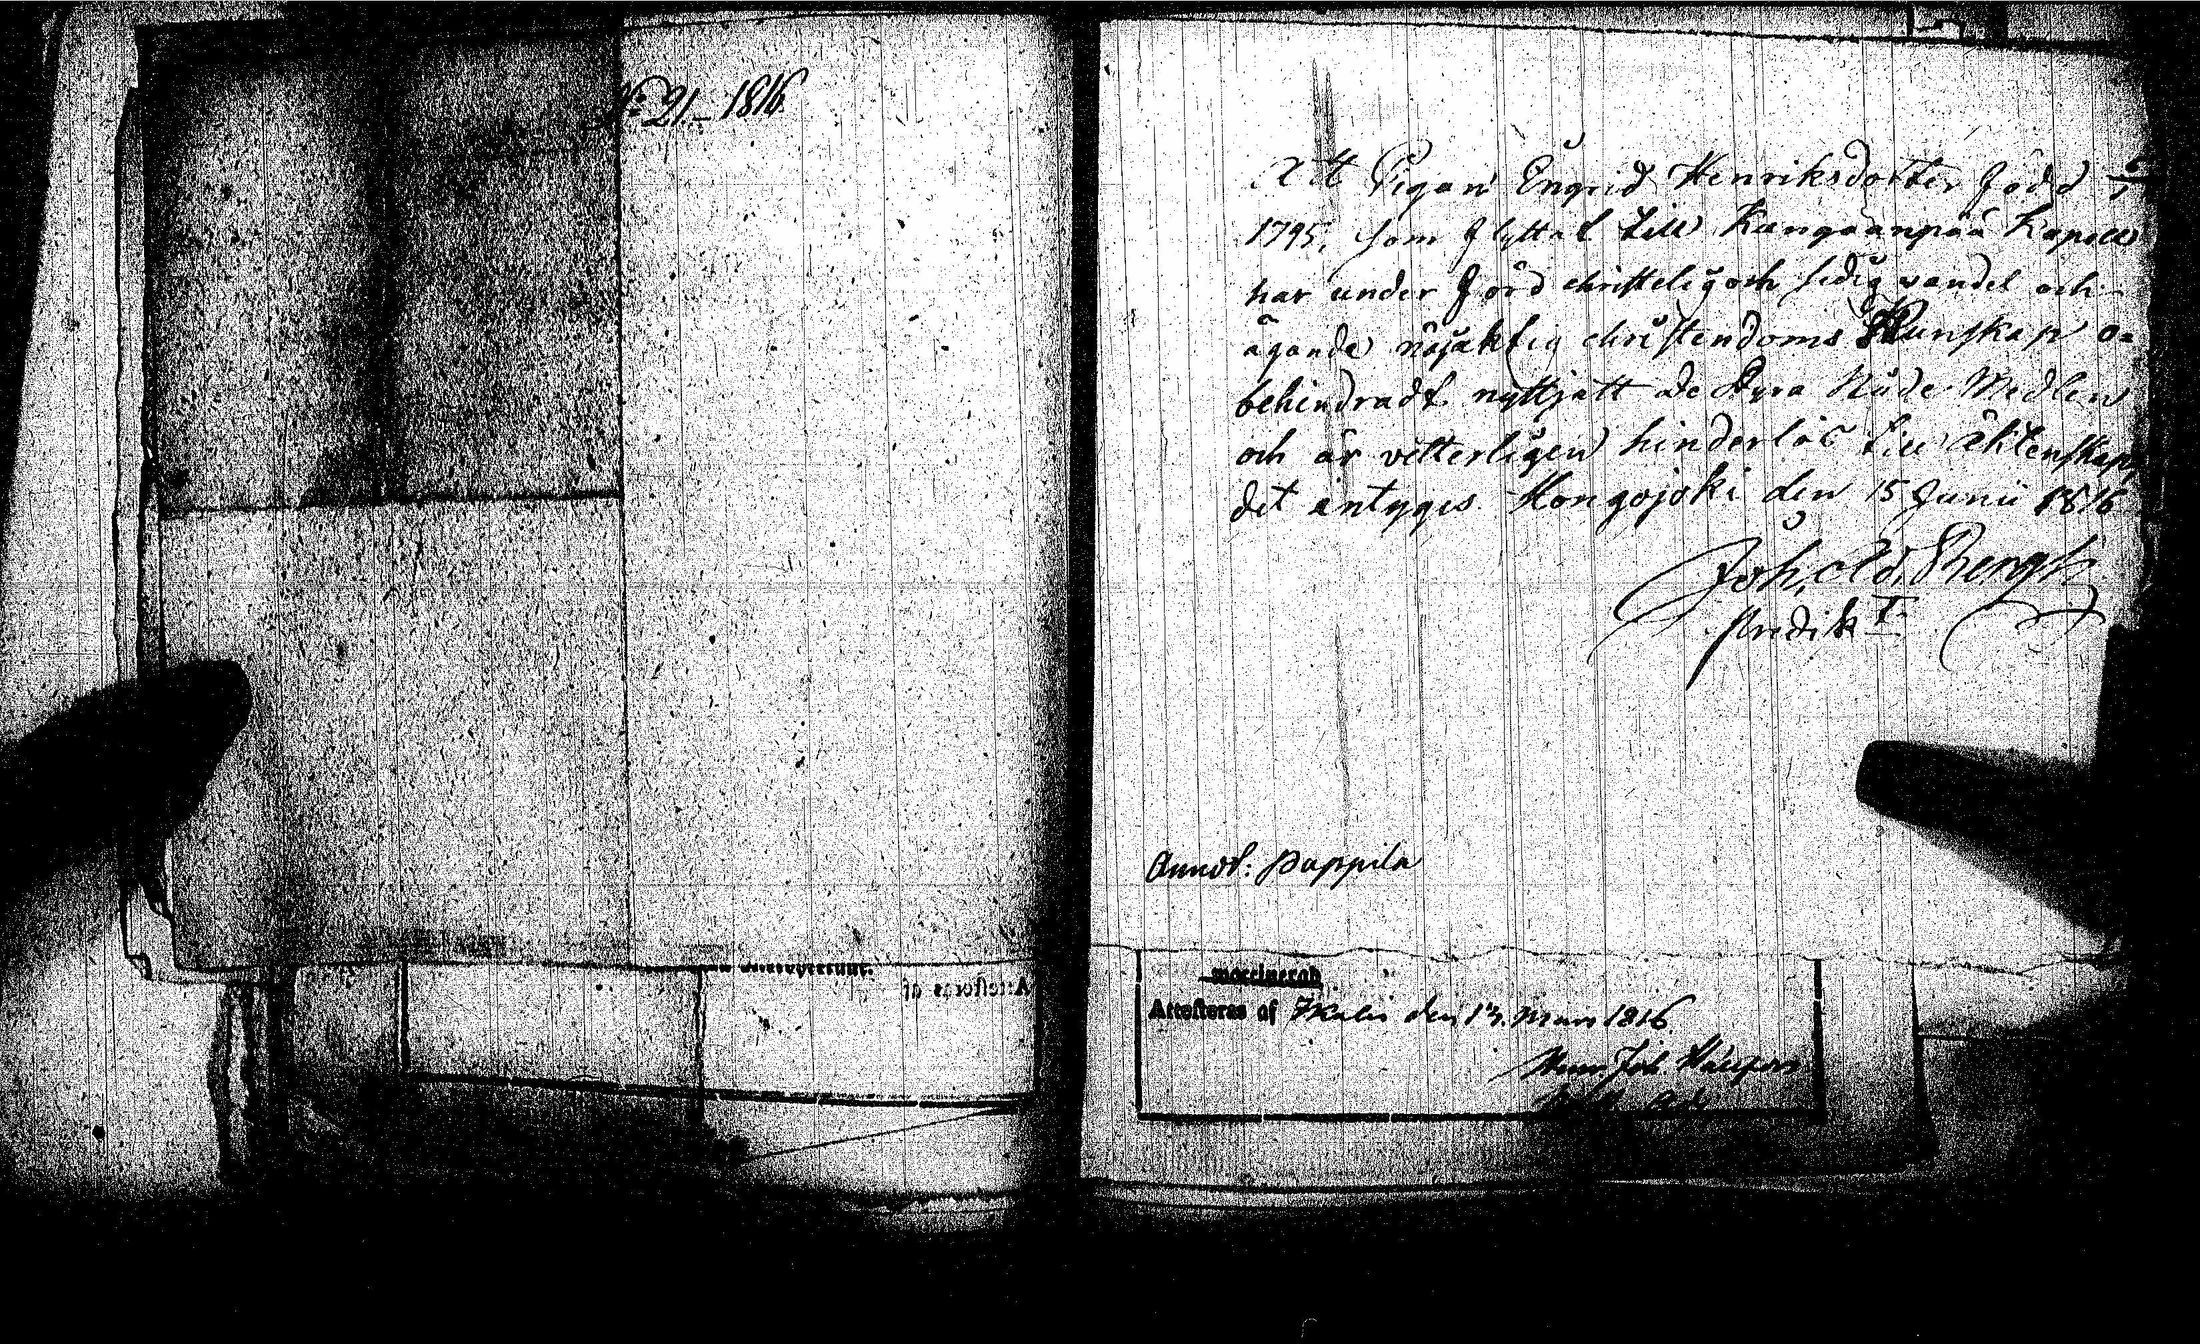 No 21_ 1816
Att Pigan Engrid Henriksdotter född
1795, som flyttat till Kangaanpää Kapell
har under förd christelig och sedig vandel och
ägande nöjaktig christendoms Kunskap o=
behindradt nyttjatt de Dyra Nåde Medlen
och är vetterligen hinderlös till äktenskap,
det intyges Hongojoki den 15 Junii 1816
Joh, Bergh
Annot: Pappila
vaccinerad
Attesteras af Ikalis den 13. Mars 1816
Joh